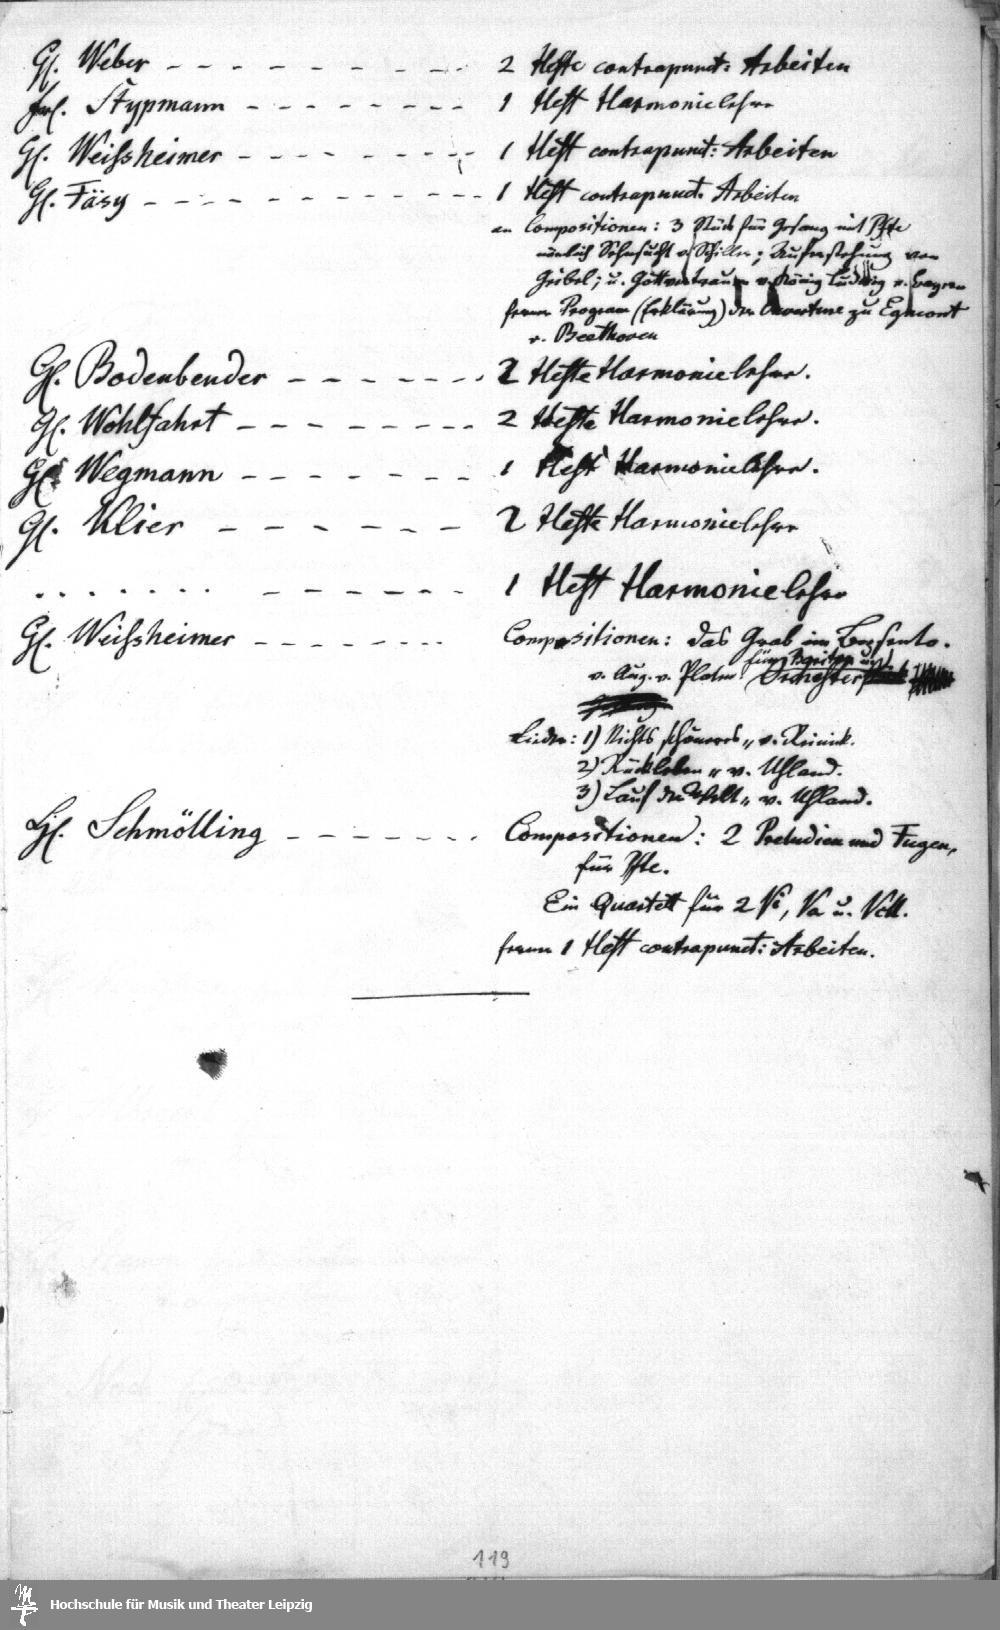 H. Weber - - - - - - - - - 2 Hefte contrapunct: Arbeiten
Frl. Stypmann - - - - - - - - 1 Heft Harmonielehre
H. Weissheimer - - - - - - - - 1 Heft contrapunct: Arbeiten
H. Fäsy - - - - - - - - - - - 1 Heft contrapunct. Arbeiten
an Compositionen: 3 Stück für Gesang mit Pfte
nämlich Sehnsucht v. Schiller; Auferstehung von
Geibel; u. Gottvertrauen v. König Ludwig v. Bayern
ferner Program (Erklärung) der Ouverture zu Egmont
v. Beethoven
H. Bodenbender - - - - - - - 2 Hefte Harmonielehre.
H. Wohlfahrt - - - - - - - - - 2 Hefte Harmonielehre.
H. Wegmann - - - - - - - 1 Heft Harmonielehre.
H. Klier - - - - - - 2 Hefte Harmonielehre
. . . . . . . . - - - - - - 1 Heft Harmonielehre
H. Weissheimer - - - - - - - Compositionen: das Grab im Busento.
für Bariton und
v. Aug. v. Platen Orchester
Lieder: 1) Nichts schöneres „ v. Reinick.
2) Rückleben „ v. Uhland.
3) Lauf der Welt „ v. Uhland.
H. Schmölling - - - - - - - Compositionen: 2 Preludien und Fugen,
für Pfte.
Ein Quartett für 2 Vi, Va u. Vcll.
ferner 1 Heft contrapunct: Arbeiten.
119
Hochschule für Musik und Theater Leipzig